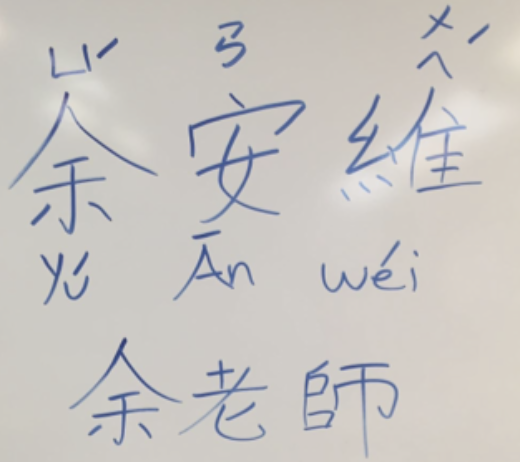 ㄩˊ ㄢ ㄨㄟˊ
余安維
Yú Ān wéi
余老師